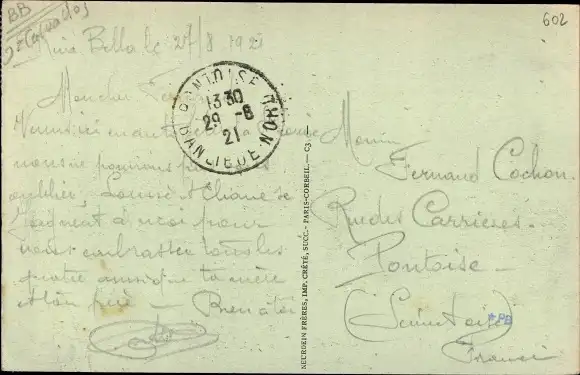 BB
Calvados
602
Riva Bella le 27/8 1921
Mon cher
PONTOISE
13 30
29 - 8
21
BANLIEUE-NORD
nous ne pouvions
oublier, Louise & Eliane se
joignent à moi pour
vous embrasser tous les
quatre ainsi que ta mère
et ton père — Bien à toi
NEURDEIN FRÈRES, IMP. CRÉTÉ, SUCC. - PARIS-CORBEIL. — C3
Fernand Cochon
Rue des Carrières.
Pontoise —
(Seine & Oise)
PB
France